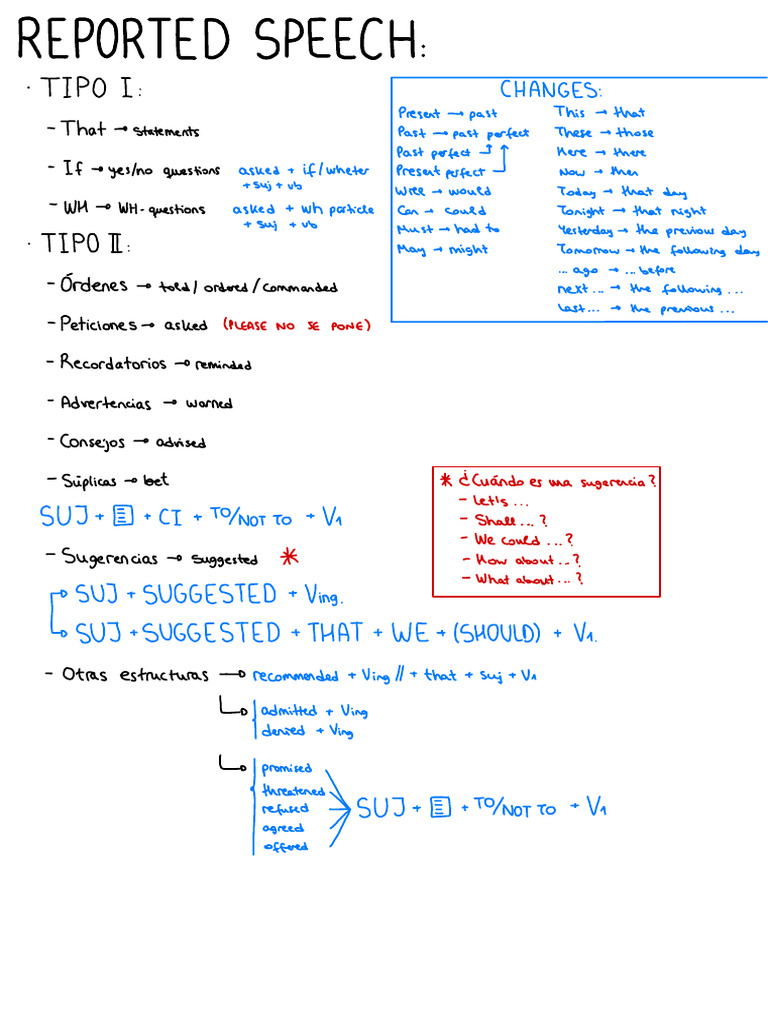 REPORTED SPEECH:
· TIPO I:
- That → statements
- If → yes/no questions asked + if/wheter
+ suj + vb
- WH → WH-questions asked + wh particle
+ suj + vb
· TIPO II:
- Órdenes → told/ordered/commanded
- Peticiones → asked (PLEASE NO SE PONE)
- Recordatorios → reminded
- Advertencias → warned
- Consejos → advised
- Súplicas → bet
SUJ + + CI + TO/NOT TO + V1
- Sugerencias → suggested *
→ SUJ + SUGGESTED + Ving.
→ SUJ + SUGGESTED + THAT + WE + (SHOULD) + V1.
- Otras estructuras → recommended + Ving // + that + suj + V1
→ admitted + Ving
denied + Ving
→ promised
threatened
refused
agreed
offered
SUJ + + TO/NOT TO + V1
CHANGES:
Present → past
Past → past perfect
Past perfect
Present perfect
Will → would
Can → could
Must → had to
May → might
This → that
These → those
Here → there
Now → then
Today → that day
Tonight → that night
Yesterday → the previous day
Tomorrow → the following day
... ago → ... before
next... → the following ...
last... → the previous ...
* ¿Cuándo es una sugerencia?
- Let's ...
- Shall ... ?
- We could ... ?
- How about ... ?
- What about ... ?